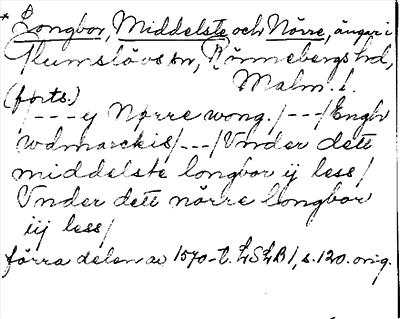 * Longbor, Middelste och Nörre, ängar i
Glumslövs sn, Rönnebergs hd,
Malm. l.
(forts.)
/---y Nørre wong. /---/Engh
wdmarckis/---/Vnder dett
middelste longbor ij less/
Vnder dett nörre longbor
iij less/
förra delen av 1570-t. LSLB 1, s. 120. orig.